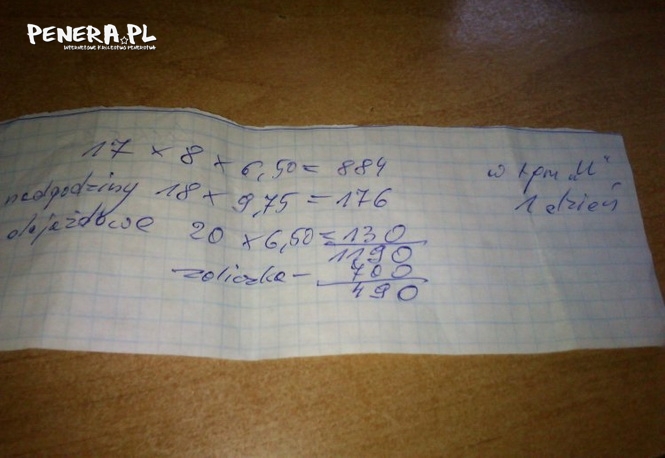 PENERA.PL
INTERNETOWE KRÓLESTWO PENERSTWA
17 × 8 × 6,50 = 884
nadgodziny 18 × 9,75 = 176
dojazdowe 20 × 6,50 = 130
1190
zaliczka - 700
490
w tym „U"
1 dzień